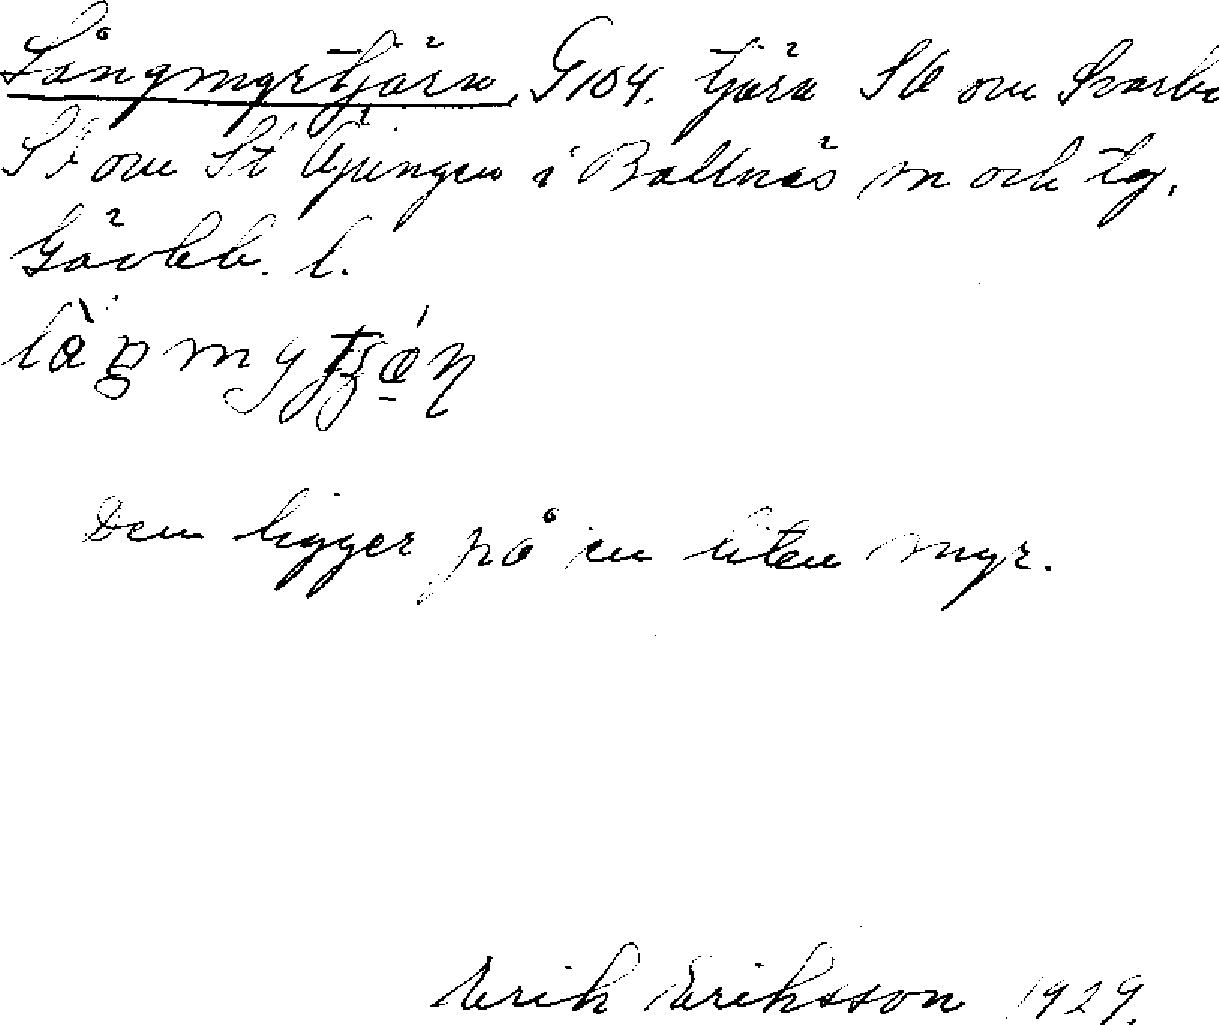 Långmyrtjärn, G104. tjärn SV om Svarbo
SV om St Öjungen i Bollnäs sn och tg.
Gävlb. l.
Den ligger på en liten myr.
Erik Eriksson 1929.